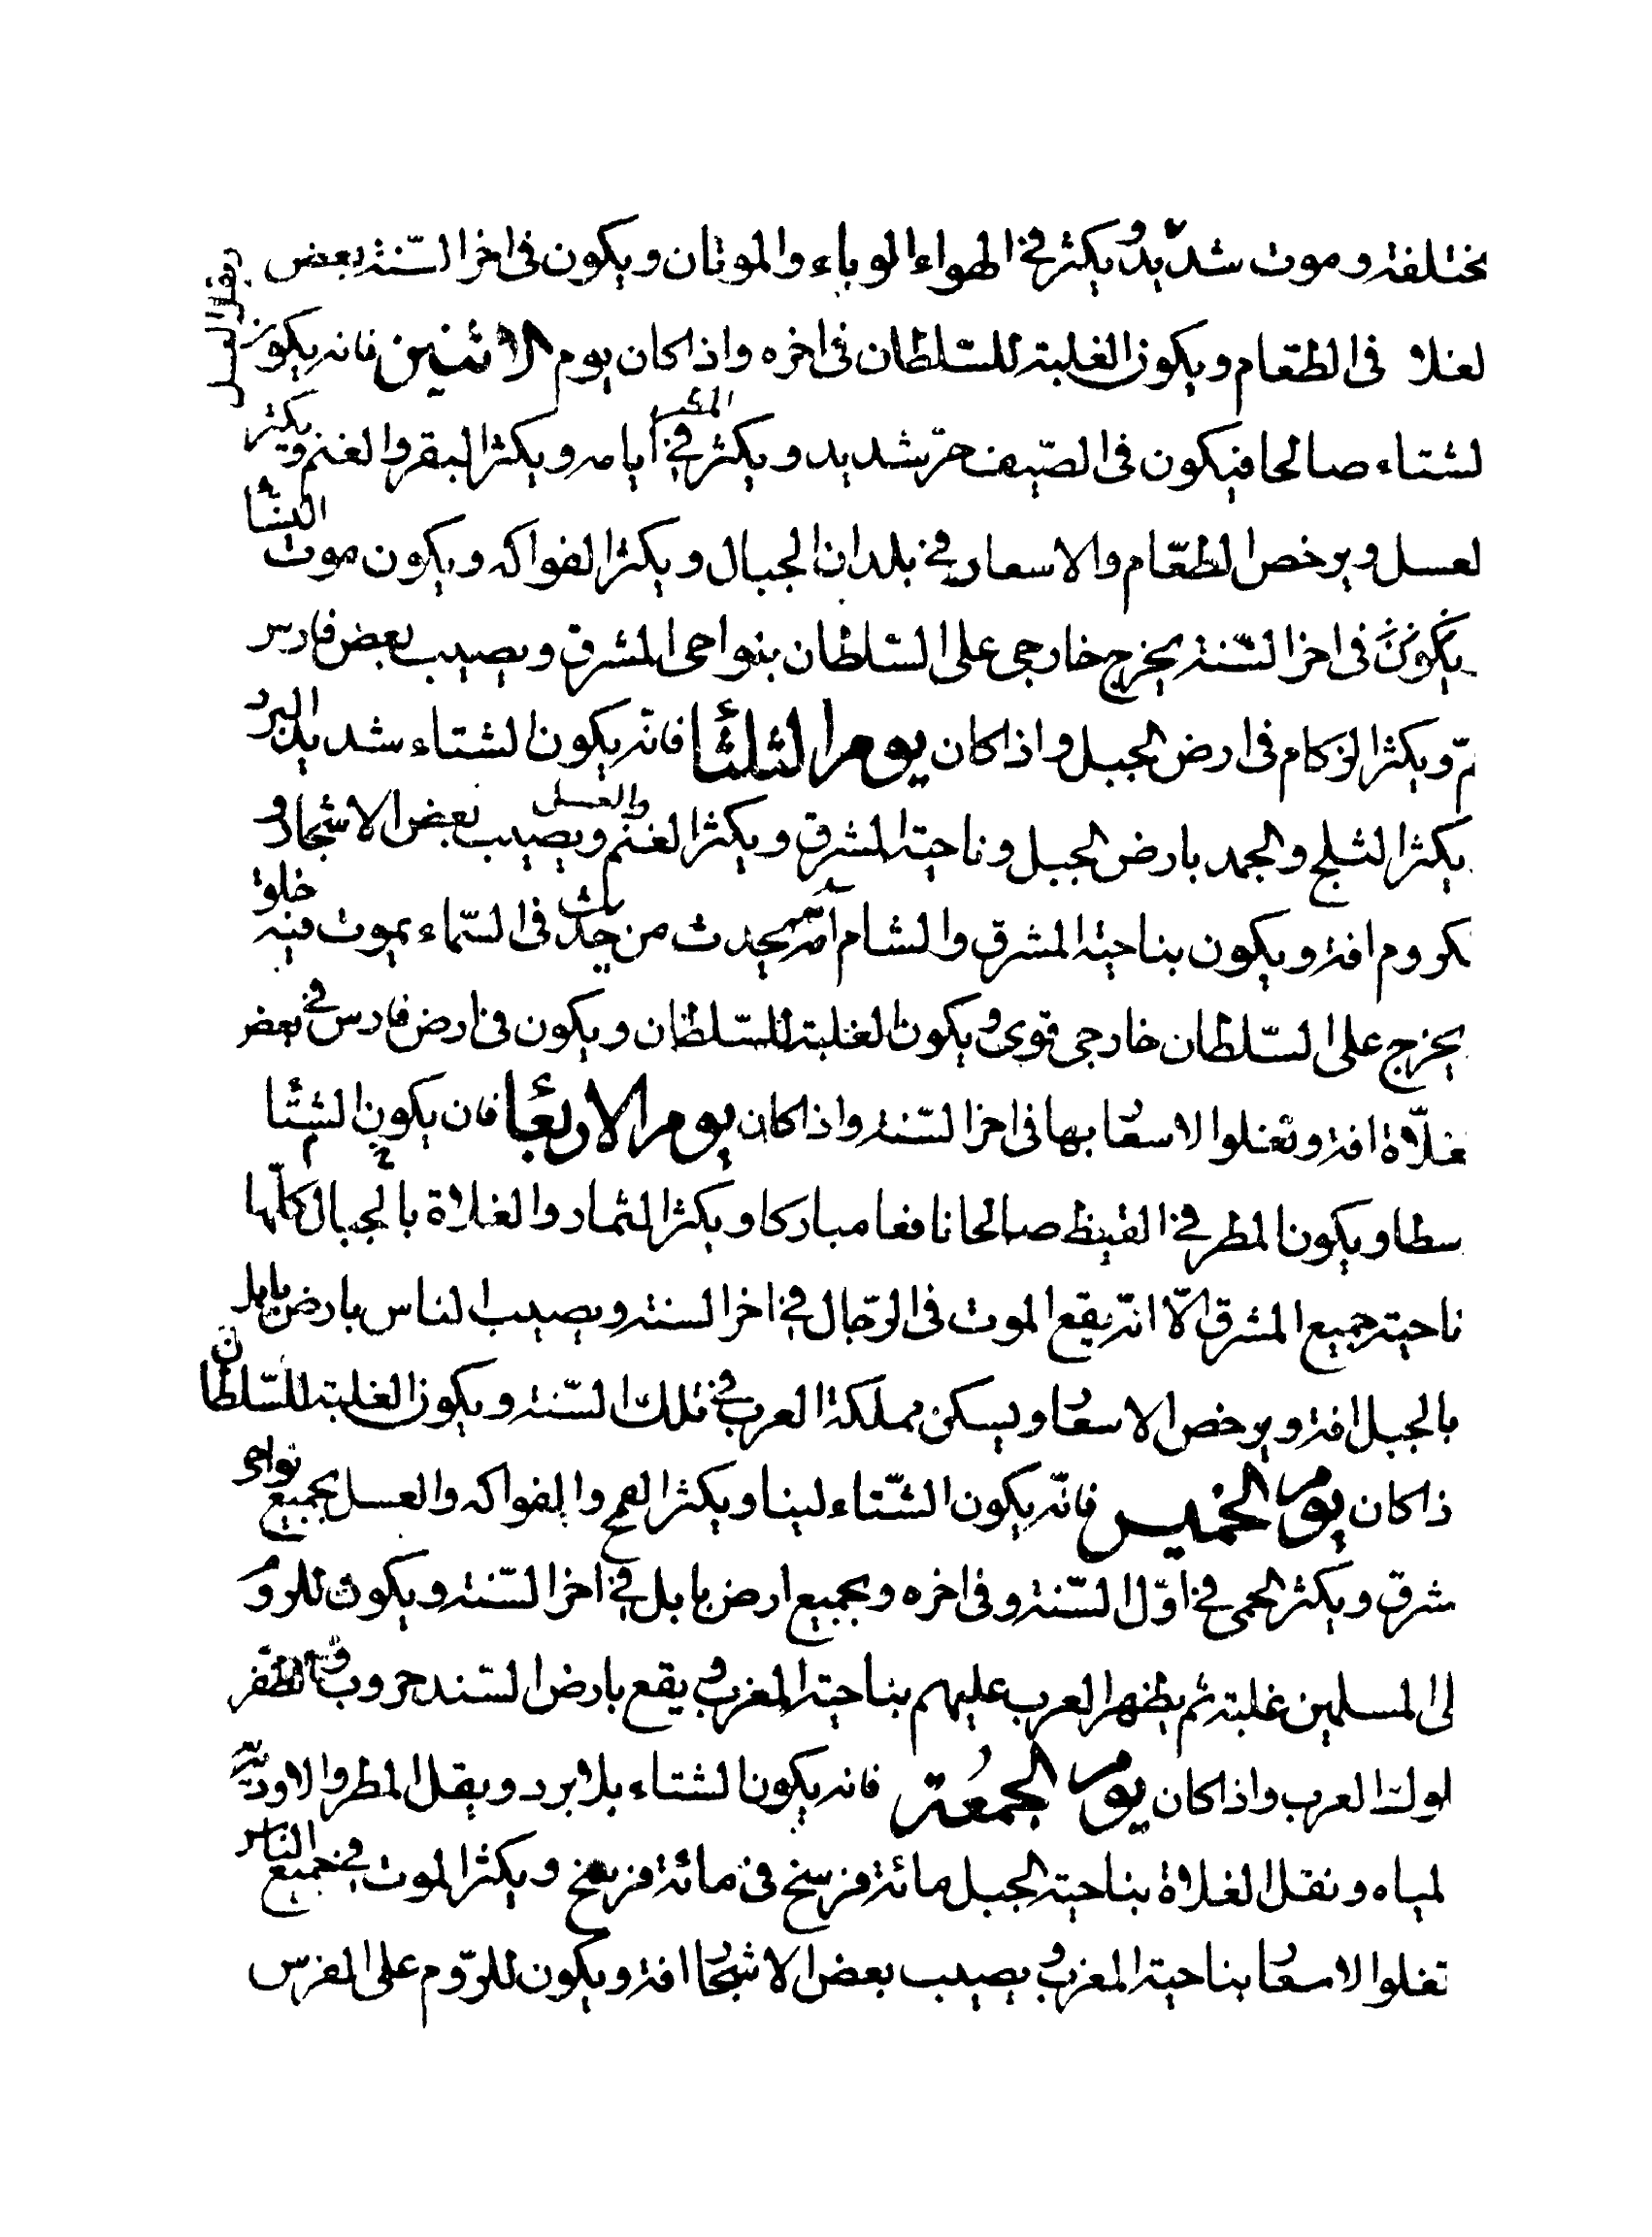 مختلفة وموت شديد ويكثر في الهواء الوباء والموتان ويكون في اخر السّنة بعض
لغلا في الطعام ويكون الغلبة للسّلطان في اخره واذا كان يوم الاثنين فانه يكون
لشتاء صالحا فيكون في الصّيف حرّ شديد ويكثر المطر في ايامه ويكثر البقر والغنم ويكثر
لعسل ويرخص الطّعام والاسعار في بلدان الجبال ويكثر الفواكه ويكون موت النسا
يكونّ في اخر السّنة يخرج خارجي على السّلطان بنواحي المشرق ويصيب بعض فارس
مّ ويكثر الزكام في ارض الجبل واذا كان يوم الثلثا فانّه يكون الشتاء شديد البرد
يكثر الثلج والجمد بارض الجبل وناحية المشرق ويكثر الغنم والعسل ويصيب بعض الاشجار و
لكروم افة ويكون بناحية المشرق والشام امر يحدث من في السّماء يموت فيه خلق
يخرج على السّلطان خارجي قوي ويكون الغلبة للسّلطان ويكون في ارض فارس في بعض
لغلّاة افة وتغلوا الاسعا بها في اخر السّنة واذا كان يوم الاربعا فان يكون الشتّا
سطا ويكون المطر في القيظ صالحا نافعا مباركا ويكثر الثمار والغلاة بالجبال كلّها
ناحية جميع المشرق الّا انّه يقع الموت في الرّجال في اخر السنة ويصيب الناس بارض بابل
بالجبل افة ويرخص الاسعا ويسكن مملكة العرب في تلك السّنة ويكون الغلبة للسّلطان
ذا كان يوم الخميس فانّه يكون الشّتاء لينا ويكثر القمح والفواكه والعسل بجميع نواحي
شرق ويكثر الحمى في اوّل السّنة وفي اخره وبجميع ارض بابل في اخر السّنة ويكون للروم
لى المسلمين غلبة ثم يظهر العرب عليهم بناحية المغرب ويقع بارض السّند حروب والظفر
لولة العرب واذا كان يوم الجمعة فانه يكون الشتاء بلا برد ويقل المطر والاودية
لمياه وتقل الغلاة بناحية الجبل مائة فرسخ في مائة فرسخ ويكثر الموت في جميع الناس
تغلوا الاسعا بناحية المغرب ويصيب بعض الاشجا افة ويكون للرّوم على الفرس